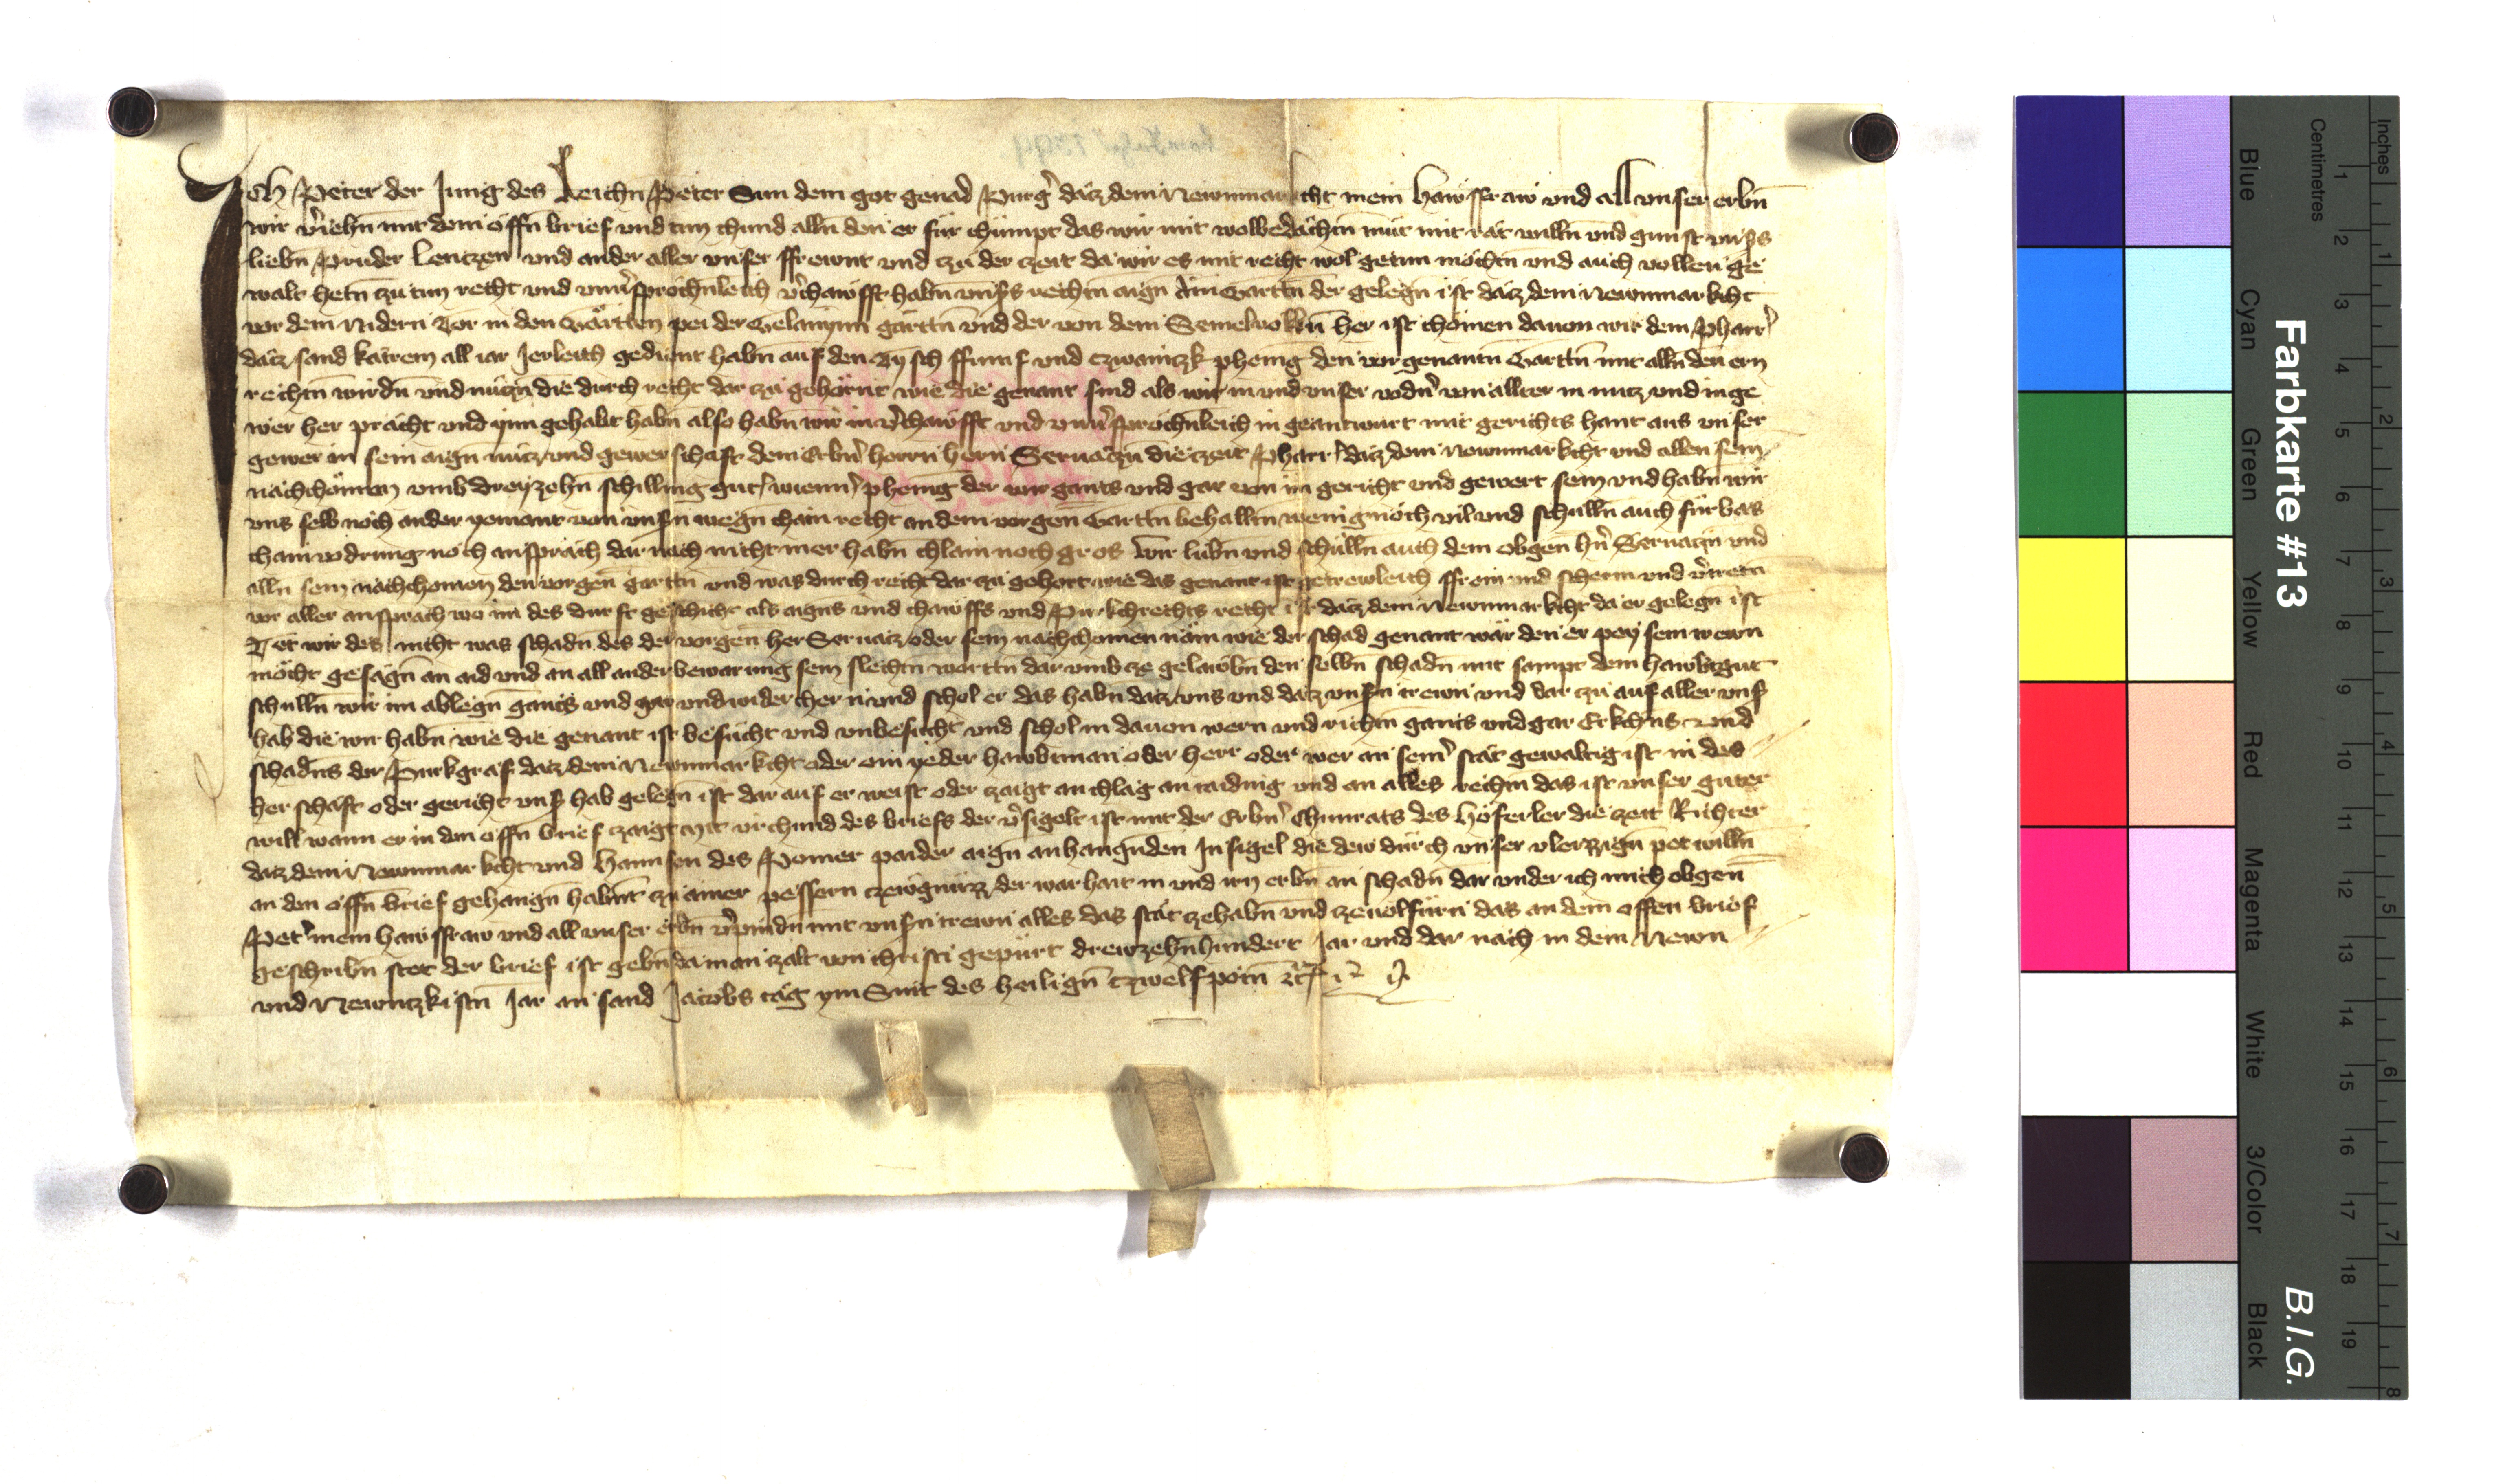 Ich Peter der Jung des Leichn Peter Sun dem got genad Purg datz dem Newnmarkcht mein hawsfraw vnd all vnser erbn
wir veriehn mit dem offn brief vnd tun chund alln den er für chümpt das wir mit wolbedachtm müt mit rat willn vnd gunst vnsers
liebn Pruder Lentzen vnd ander aller vnser ffrewnt vnd czu der czeit da wir es mit recht wol getun mochtn vnd auch vollen ge
walt hetn czu tun recht vnd vnuersprochnleich verchawfft habn vnsers rechtn aign Ain Garttn der gelegn ist datz dem Newnmarkcht
vor dem Nidern Tor in den Gärtten pei der garttn vnd der von dem her ist chömen dauon wir dem Pharrer
datz sand katrein all iar Jerleich gedient habn auf den Tysch ffumf vnd czwaintzk phenig den vorgenantn Garttn mit alln den ern
rechtn wirdn vnd nützn die durch recht dar zu gehörnt wie die genant sind als wir in vnd vnser vodern von allter in nutz vnd in ge
wer her pracht vnd ynn gehabt habn also habn wir in verchawfft vnd vnuersprochnleich in geantwurt mit gerichts hant aus vnser
gewer in sein aign nutz vnd gewerschaft dem Erbern herrn hern Seruatzn die zeit Pharrer datz dem Newnmarkcht vnd allen sein
nachchömen vmb dreyzehn schilling guter wienner phenig der wir gants vnd gar von im gericht vnd gewert sein vnd habn wir
vns selb noch ander yemant von vnsern wegn chain recht an dem vorgen Garttn behalltn wenig noch vil vnd schulln auch fürbas
chain vodrung noch ansprach dar nach nicht mer habn chlain noch gros Wir lubn vnd schülln auch dem obgen hern Seruatzn vnd
alln sein nachchomen den vorgen garttn vnd was durch recht dar zu gehort wie das genant ist getrewleich ffrein vnd scherm vnd vertretn
vor aller ansprach wo im des durft geschicht als aigens vnd chawffs vnd Purkchrechts recht ist datz dem Newnmarkcht da er gelegn ist
Tet wir des nicht was schadn des der vorgen her Seruatz oder sein nachchomen näm wie der schad genant wär den er pey sein trewn
möcht gesagn an aid vnd an all ander bewarung sein slechtn worttn dar vmb ze gelawbn den selbn schadn mit sampt dem hawbtgut
schulln wir im ablegn gants vnd gar vnd wider chern vnd schol er das habn datz vns vnd datz vnsern trewn vnd dar zu auf aller vnser
hab die wir habn wie die genant ist besücht vnd vnbesücht vnd schol in dauon wern vnd richtn gants vnd gar Erkchns vnd
schadns der Purkgraf datz dem Newnmarkcht oder ein yeder hawbtman oder herr oder wer an seiner stat gewaltig ist in des
herschaft oder gericht vnser hab gelegn ist dar auf er weist oder zaigt an chlag an taiding vnd an alles rechtn das ist vnser guter
will wann er in den offn brief zaigt Mit vrchund des briefs der versigelt ist mit der Erbern Chunrats des Höferler die zeit Richter
datz dem Newnmarkcht vnd Hannsen des Pomer paider aign anhangunden Insigel die dew durch vnser vleizzign pet willn
an den offn brief gehangn habnt zu ainer pessern czewgnüzz der warhait in vnd irn erbn an schadn dar vnder ich mich obgen
Peter mein hawsfraw vnd all vnser erbn verpindn mit vnsern trewn alles das stät ze habn vnd ze uolfürn das an dem offen brief
geschribn stet der brief ist gebn da man zalt von christi gepürt drewzehnhundert Jar vnd dar nach in dem Newn
vnd Newntzkistn Jar an sand Jacobs tag ym Snit des heilign Czwelfpotn
Farbkarte #13
B.I.G.
Centimetres
Inches
Blue
Cyan
Green
Yellow
Red
Magenta
White
3/Color
Black
1 2 3 4 5 6 7 8 9 10 11 12 13 14 15 16 17 18 19
1 2 3 4 5 6 7 8